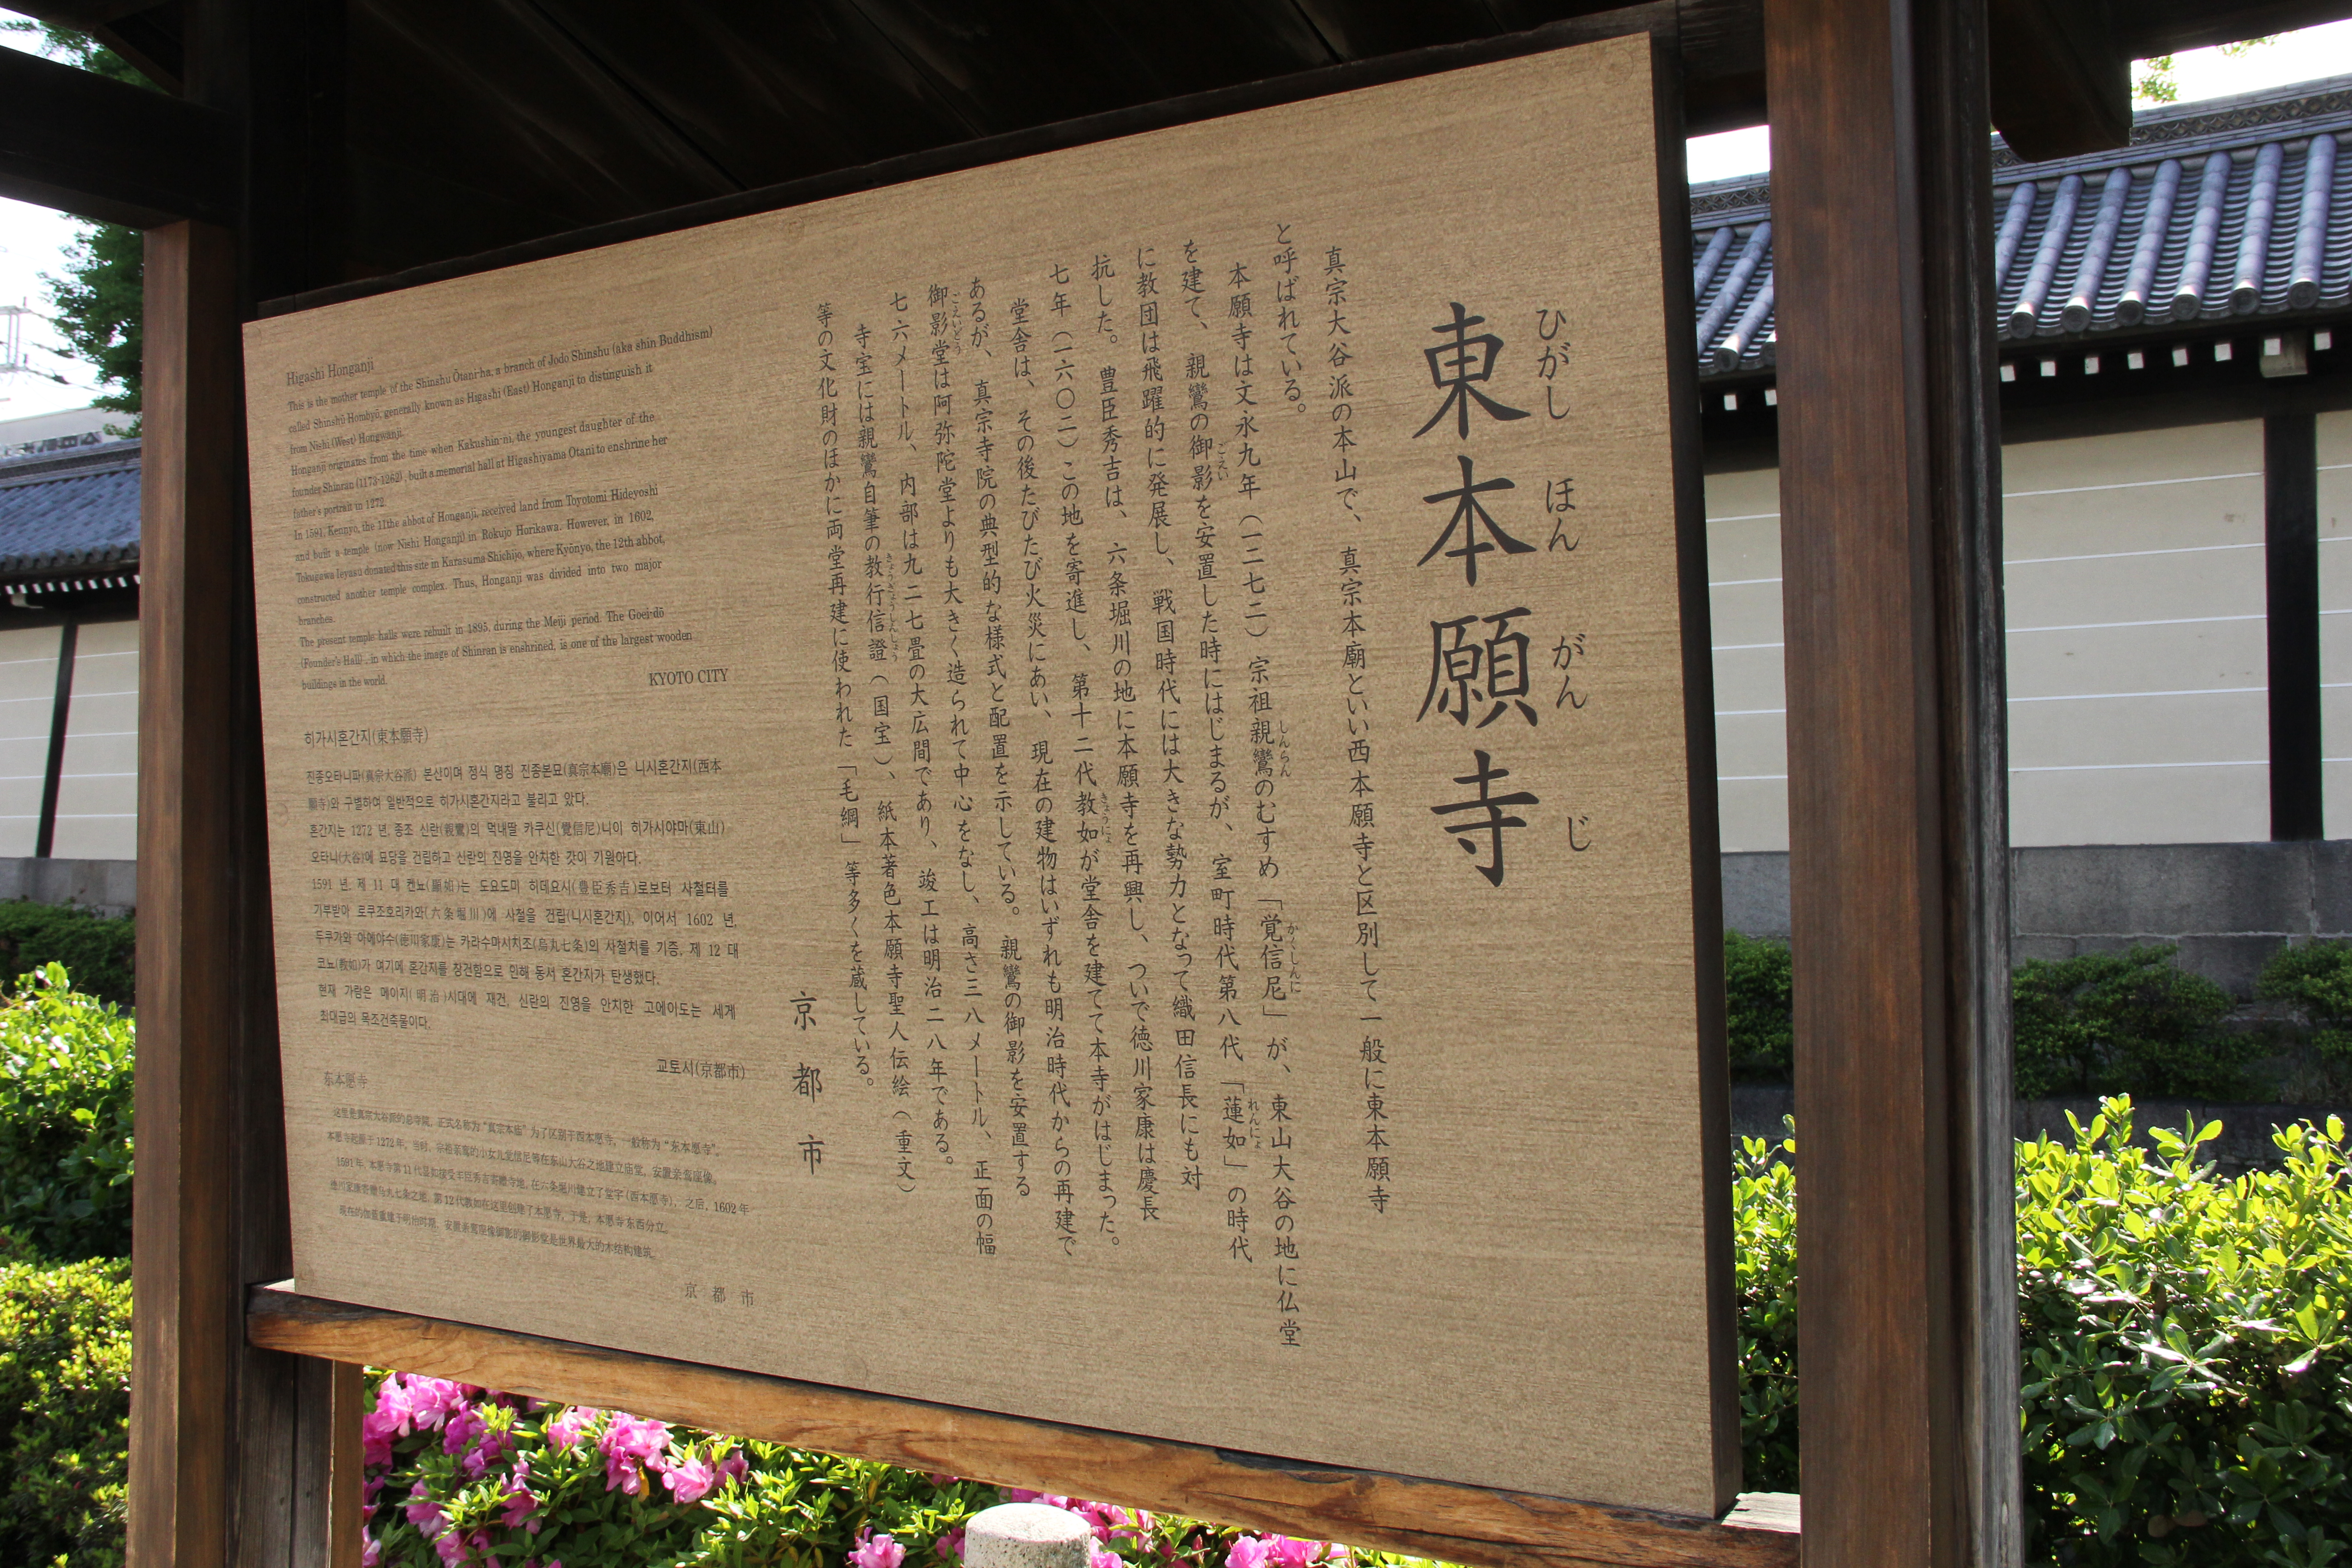 東本願寺
ひがし ほん がん じ
真宗大谷派の本山で、真宗本廟といい西本願寺と区別して一般に東本願寺
と呼ばれている。
本願寺は文永九年（一二七二）宗祖親鸞のむすめ「覚信尼」が、東山大谷の地に仏堂
しんらん かくしんに
を建て、親鸞の御影を安置した時にはじまるが、室町時代第八代「蓮如」の時代
ごえい れんにょ
に教団は飛躍的に発展し、戦国時代には大きな勢力となって織田信長にも対
抗した。豊臣秀吉は、六条堀川の地に本願寺を再興し、ついで徳川家康は慶長
七年（一六〇二）この地を寄進し、第十二代教如が堂舎を建てて本寺がはじまった。
きょうにょ
堂舎は、その後たびたび火災にあい、現在の建物はいずれも明治時代からの再建で
あるが、真宗寺院の典型的な様式と配置を示している。親鸞の御影を安置する
御影堂は阿弥陀堂よりも大きく造られて中心をなし、高さ三八メートル、正面の幅
ごえいどう
七六メートル、内部は九二七畳の大広間であり、竣工は明治二八年である。
寺宝には親鸞自筆の教行信證（国宝）、紙本著色本願寺聖人伝絵（重文）
きょうぎょうしんしょう
等の文化財のほかに両堂再建に使われた「毛綱」等多くを蔵している。
京都市
Higashi Honganji
This is the mother temple of the Shinshu Ōtani-ha, a branch of Jodo Shinshu (aka shin Buddhism)
called Shinshū Hombyō; generally known as Higashi (East) Honganji to distinguish it
from Nishi (West) Hongwanji.
Honganji originates from the time when Kakushin-ni, the youngest daughter of the
founder Shinran (1173-1262), built a memorial hall at Higashiyama Otani to enshrine her
father's portrait in 1272.
In 1591, Kennyo, the 11the abbot of Honganji, received land from Toyotomi Hideyoshi
and built a temple (now Nishi Honganji) in Rokujo Horikawa. However, in 1602,
Tokugawa Ieyasu donated this site in Karasuma Shichijo, where Kyōnyo, the 12th abbot,
constructed another temple complex. Thus, Honganji was divided into two major
branches.
The present temple halls were rebuilt in 1895, during the Meiji period. The Goei-dō
(Founder's Hall), in which the image of Shinran is enshrined, is one of the largest wooden
buildings in the world.
KYOTO CITY
히가시혼간지(東本願寺)
진종오타니파(真宗大谷派) 본산이며 정식 명칭 진종본묘(真宗本廟)은 니시혼간지(西本
願寺)와 구별하여 일반적으로 히가시혼간지라고 불리고 있다.
혼간지는 1272 년, 종조 신란(親鸞)의 막내딸 카쿠신(覺信尼)니이 히가시야마(東山)
오타니(大谷)에 묘당을 건립하고 신란의 진영을 안치한 것이 기원아다.
1591 년, 제 11 대 켄뇨(顯如)는 도요도미 히데요시(豊臣秀吉)로부터 사철터를
기부받아 로쿠조호리카와(六条堀川)에 사철을 건립(니시혼간지), 이어서 1602 년,
두쿠가와 이에야수(徳川家康)는 카라수마시치조(烏丸七条)의 사철치를 기증, 제 12 대
쿄뇨(教如)가 여기에 혼간지를 창건함으로 인해 동서 혼간지가 탄생했다.
현재 가람은 메이지(明治)시대에 재건, 신란의 진영을 안치한 고에이도는 세계
최대급의 목조건축물이다.
교토시(京都市)
东本愿寺
这里是真宗大谷派的总寺院，正式名称为“真宗本庙”为了区别于西本愿寺，一般称为“东本愿寺”。
本愿寺起源于1272年，当时，宗祖亲鸾的小女儿觉信尼等在东山大谷之地建立庙堂，安置亲鸾座像。
1591年，本愿寺第11代显如接受丰臣秀吉寄赠寺地，在六条堀川建立了堂宇(西本愿寺)，之后，1602年
德川家康寄赠乌丸七条之地，第12代教如在这里创建了本愿寺，于是，本愿寺东西分立。
现在的伽蓝重建于明治时期，安置亲鸾座像御影的御影堂是世界最大的木结构建筑。
京都市